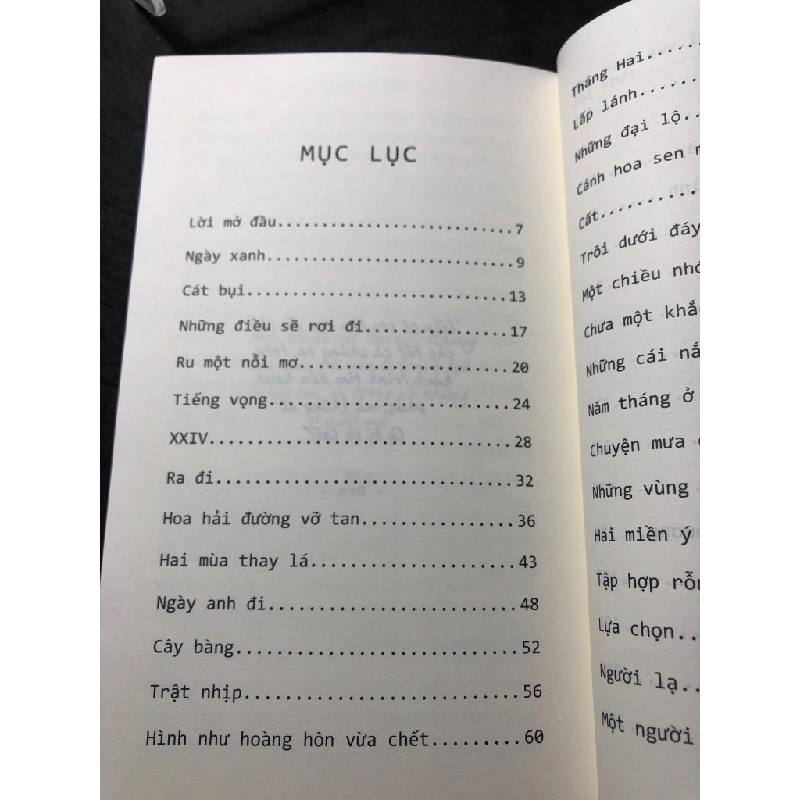 MỤC LỤC
Lời mở đầu...........................7
Ngày xanh............................9
Cát bụi.............................13
Những điều sẽ rơi đi................17
Ru một nỗi mơ.......................20
Tiếng vọng..........................24
XXIV................................28
Ra đi...............................32
Hoa hải đường vỡ tan................36
Hai mùa thay lá.....................43
Ngày anh đi.........................48
Cây bàng............................52
Trật nhịp...........................56
Hình như hoàng hôn vừa chết.........60
Tháng Hai.....
Lấp lánh........
Những đại lộ..
Cánh hoa sen
Cất..........
Trôi dưới đáy
Một chiều
Chưa một
Những cái
Năm tháng ở
Chuyện mưa
Những vùng
Hai miền ý
Tập hợp
Lựa chọn..
Người lạ..
Một người